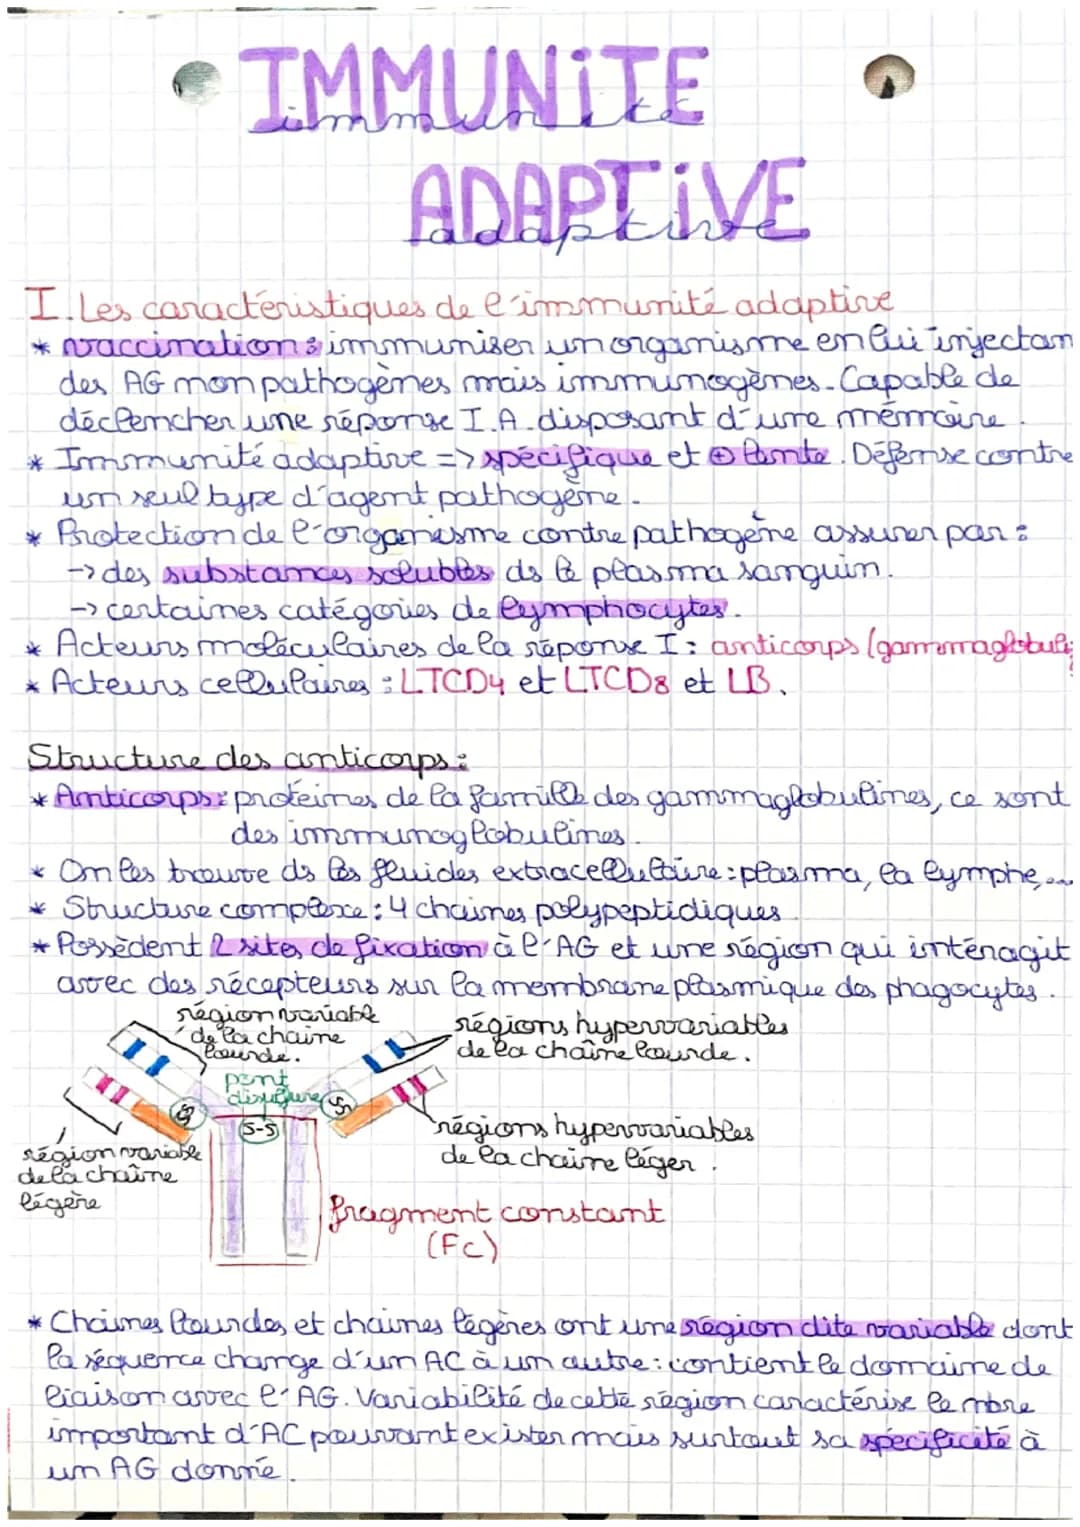 IMMUNiTE
immunité
ADAPTiVE
adaptive
I. Les caractéristiques de l'immunité adaptive
* vaccination : immuniser un organisme en lui injectan
des AG non pathogènes mais immunogènes. Capable de
déclencher une réponse I.A. disposant d'une mémoire.
* Immunité adaptive => spécifique et ⊕ lente. Défense contre
un seul type d'agent pathogène.
* Protection de l'organisme contre pathogène assurer par :
-> des substances solubles ds le plasma sanguin.
-> certaines catégories de lymphocytes.
* Acteurs moléculaires de la réponse I : anticorps (gammaglobuli
* Acteurs cellulaires : LTCD4 et LTCD8 et LB.
Structure des anticorps :
* Anticorps : protéines de la famille des gammaglobulines, ce sont
des immunoglobulines.
* On les trouve ds les fluides extracellulaire : plasma, la lymphe,...
* Structure complexe : 4 chaines polypeptidiques
* Possèdent 2 sites de fixation à l'AG et une région qui interagit
avec des récepteurs sur la membrane plasmique des phagocytes.
région variable
de la chaine
lourde.
régions hypervariables
de la chaîne lourde.
pont
disulfure
S-S
S-S
S-S
régions hypervariables
de la chaine léger.
région variable
de la chaîne
légère
fragment constant
(Fc)
* Chaines lourdes et chaines légères ont une région dite variable dont
la séquence change d'un AC à un autre : contient le domaine de
liaison avec l'AG. Variabilité de cette région caractérise le nbre
important d'AC pouvant exister mais surtout sa spécificité à
un AG donné.